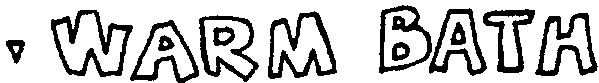 WARM BATH